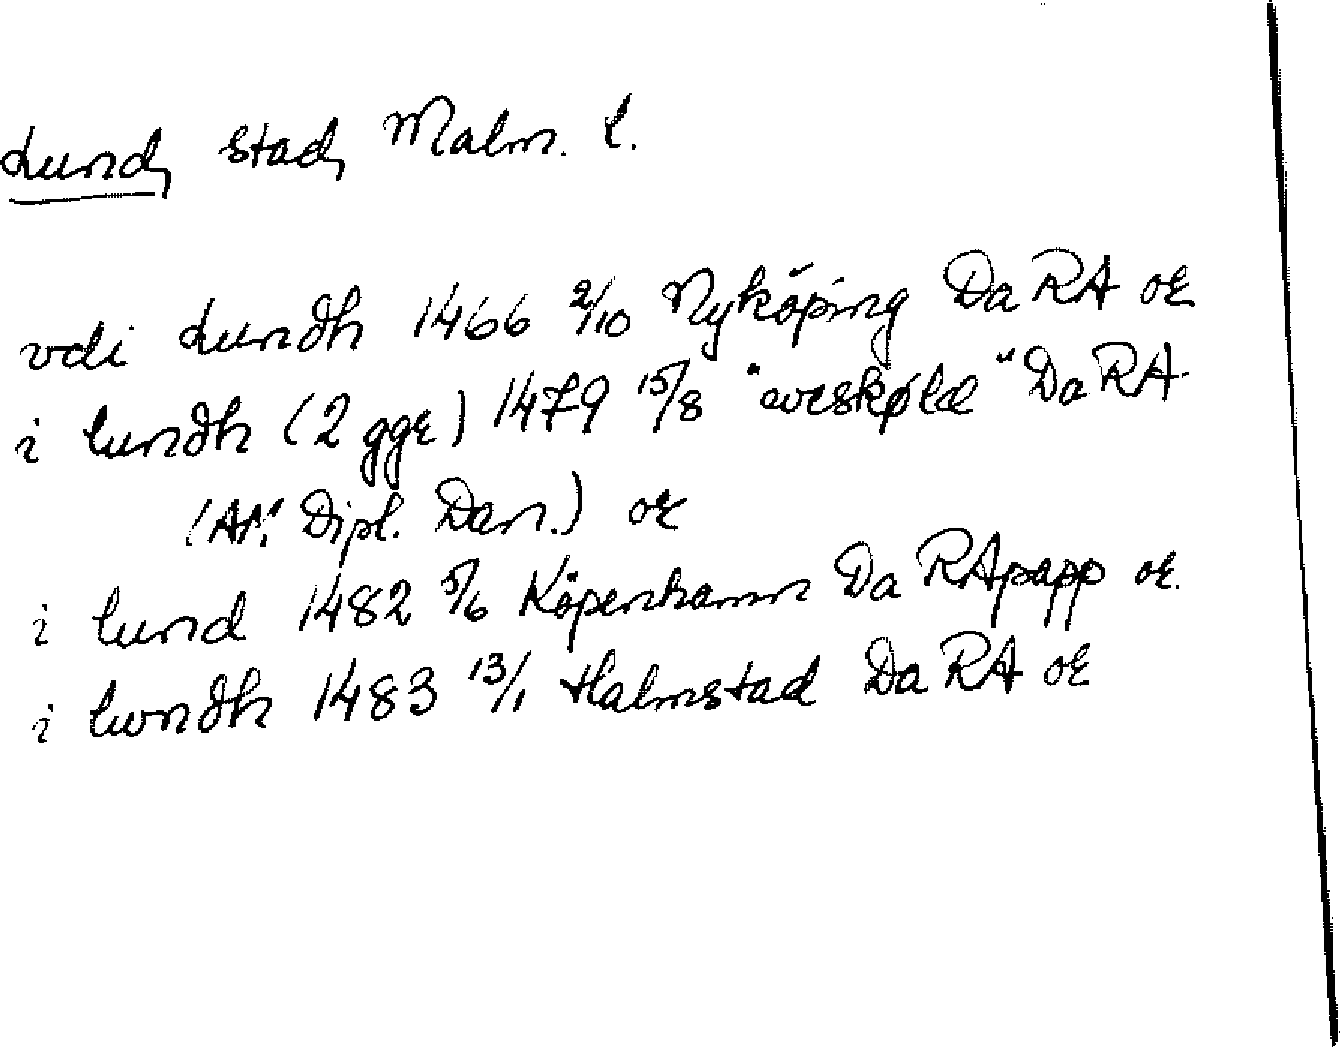 Lund, stad, Malm. l.
vdi Lundh 1466 2/10 Nyköping DaRA or
i lundh (2 ggr) 1479 15/8 "aveskøld" DaRA
(A.M. Dipl. Dan.) or
i lund 1482 5/6 Köpenhamn Da RApapp or.
i lwndh 1483 13/1 Halmstad DaRA or